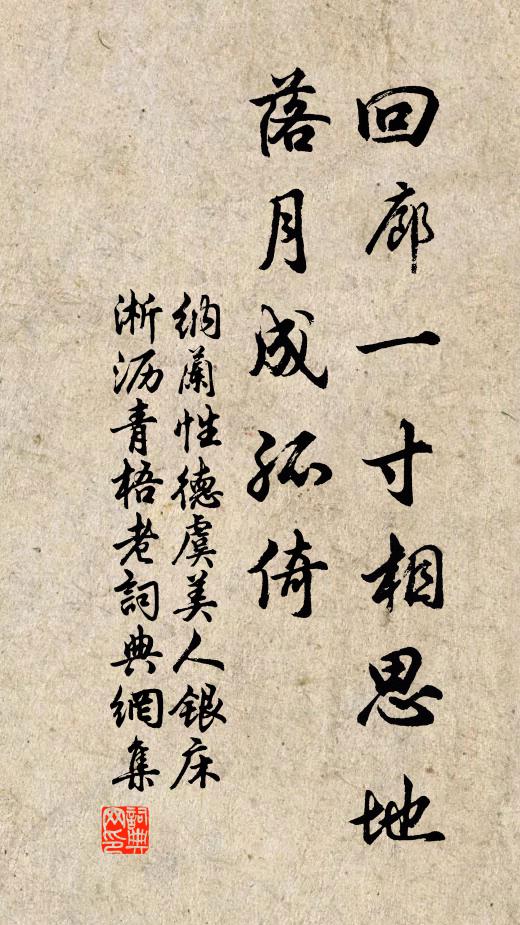 回廊一寸相思地
落月成孤倚
納蘭性德虞美人銀床
淅沥青梧老詞典網集
詞典网印